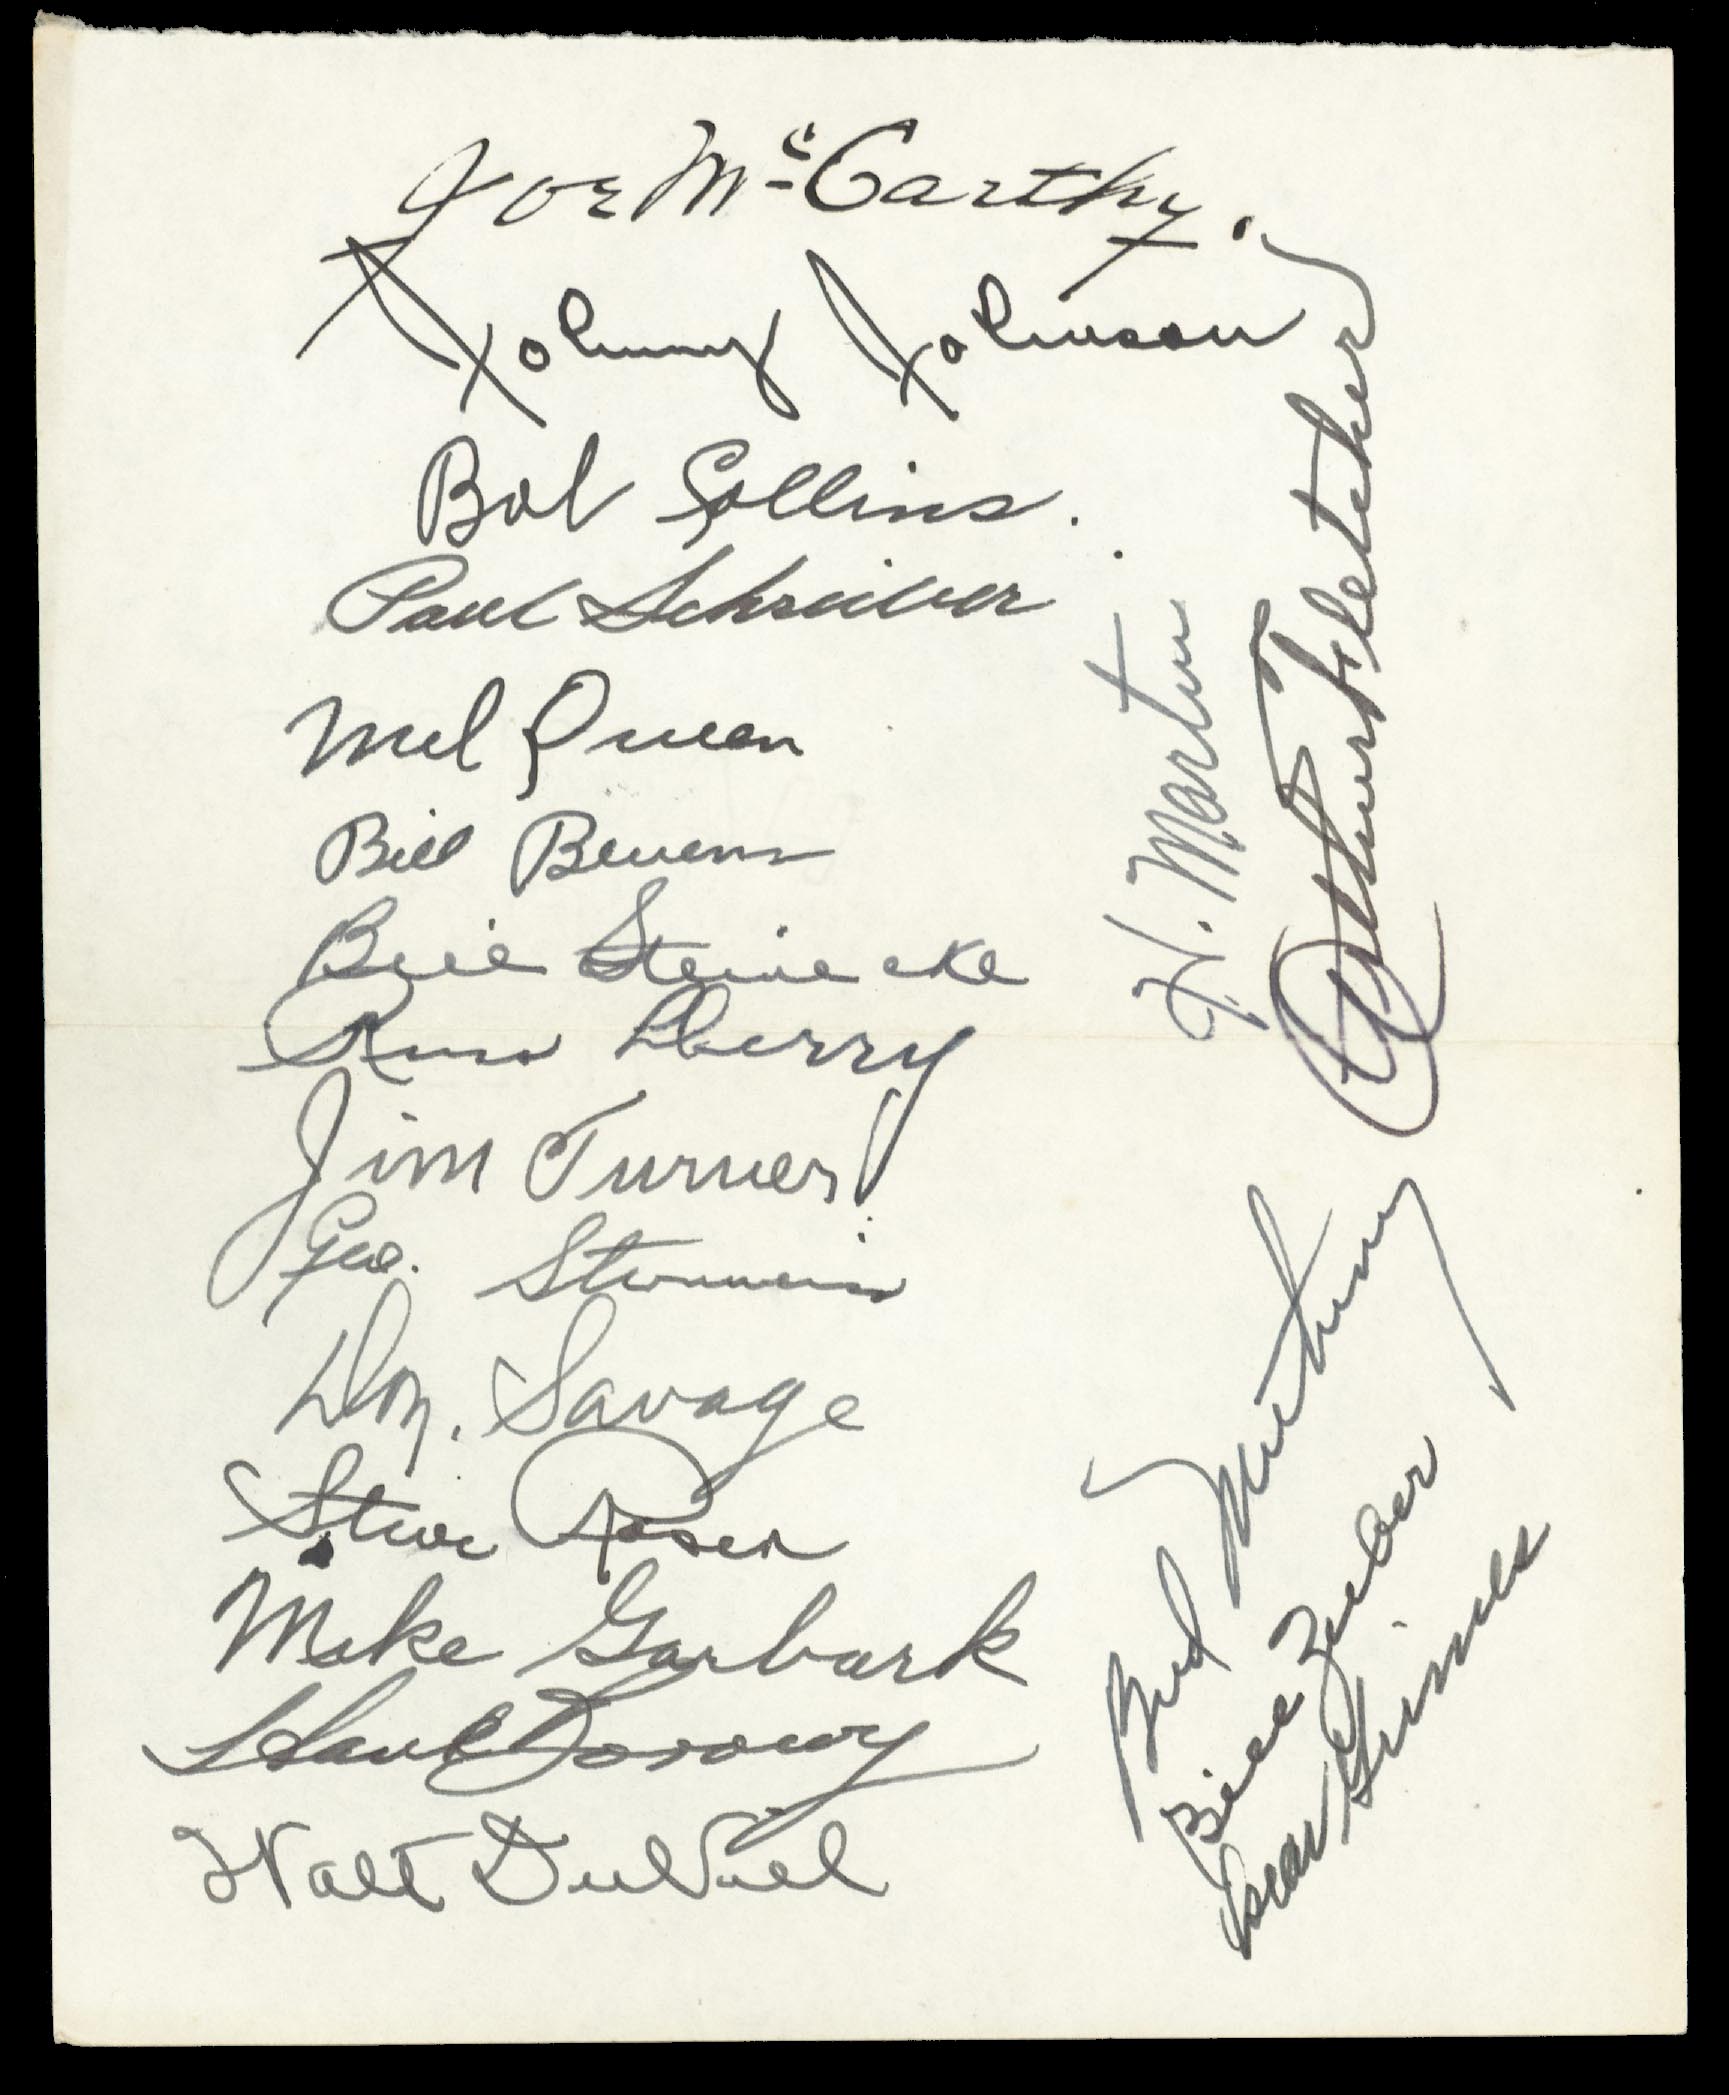 Joe McCarthy.
Johnny Johnson
Bob Collins.
Paul Schreiber
Mel Queen
Bill Bevens
Bill Steinecke
Russ Derry
Jim Turner
Geo. Stirnweiss
Don. Savage
Steve Roser
Mike Garbark
Hank Borowy
Walt DuBiel
H. Martin
Arthur Fletcher
Bud Metheny
Bill Zuber
Oscar Grimes